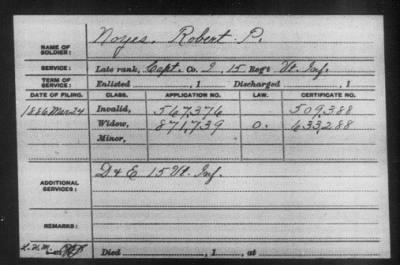 NAME OF SOLDIER: Noyes, Robert P.
SERVICE: Late rank, Capt. Co. I, 15 Reg't Vt. Inf.
TERM OF SERVICE: Enlisted , 1 Discharged , 1
DATE OF FILING. CLASS. APPLICATION NO. LAW. CERTIFICATE NO.
1886 Mar 24 Invalid, 567,376 509,388
Widow, 871,739 O. 633,288
Minor,
ADDITIONAL SERVICES: D & E 15 Vt. Inf.
REMARKS:
Died , 1 , at